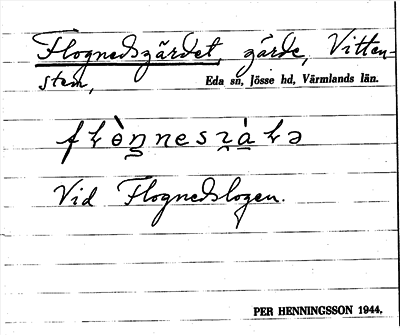 Flognedsgärdet gärde, Vitten-
sten, Eda sn, Jösse hd, Värmlands län.
Vid Flognedslogen.
PER HENNINGSSON 1944.